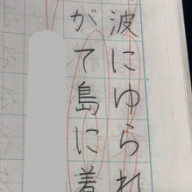 波にゆられ
がて島に着